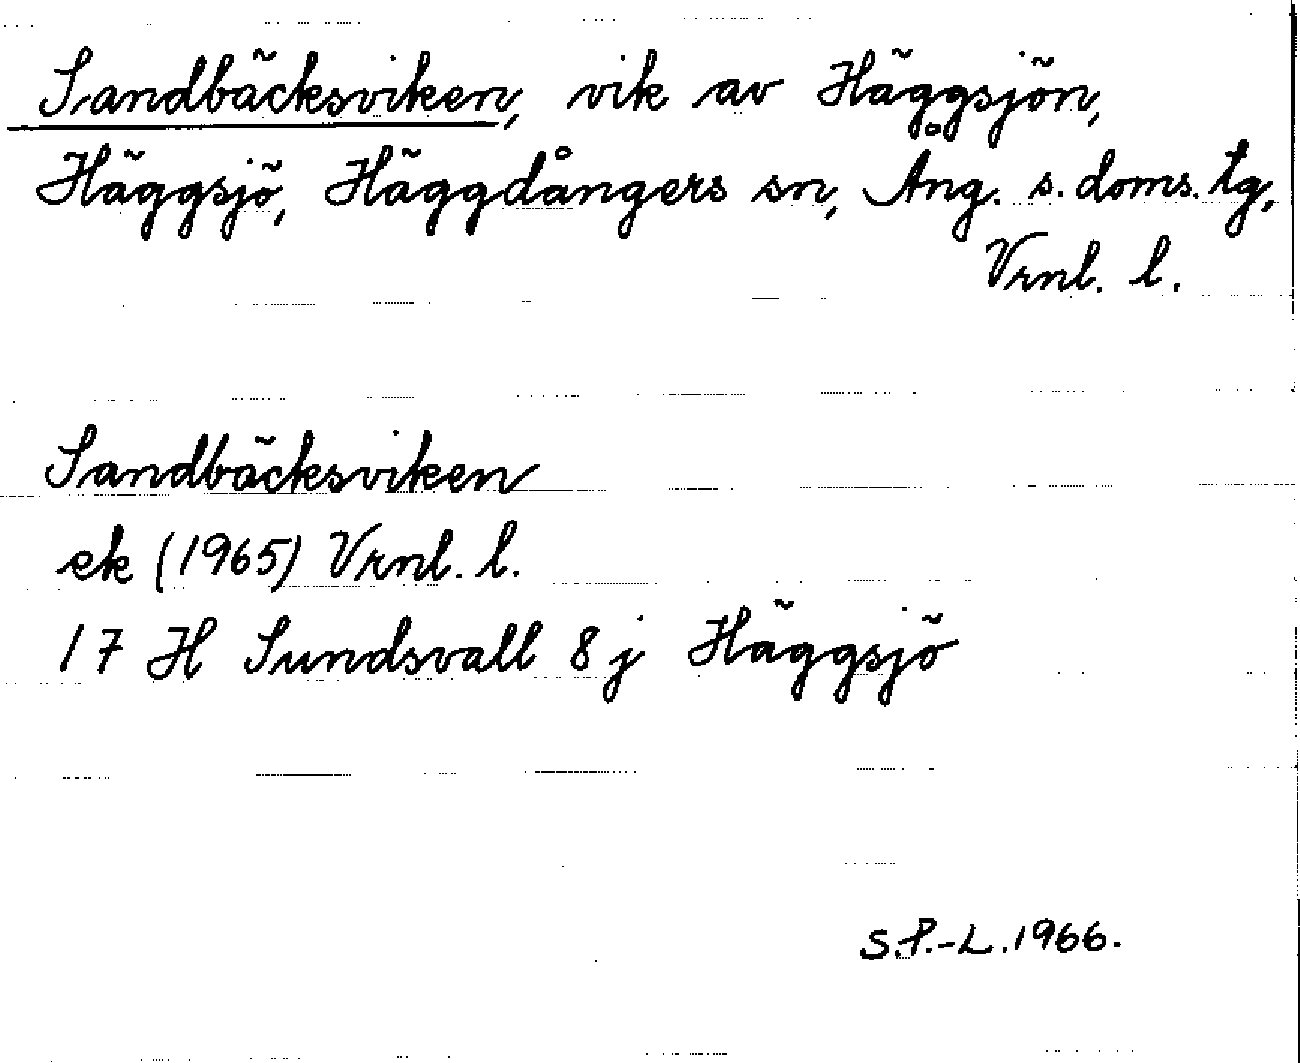 Sandbäcksviken, vik av Häggsjön,
Häggsjö, Häggdångers sn, Ång. s. doms. tg,
Vrnl. l.
Sandbäcksviken
ek (1965) Vrnl. l.
17 H Sundsvall 8 j Häggsjö
S.P.-L. 1966.